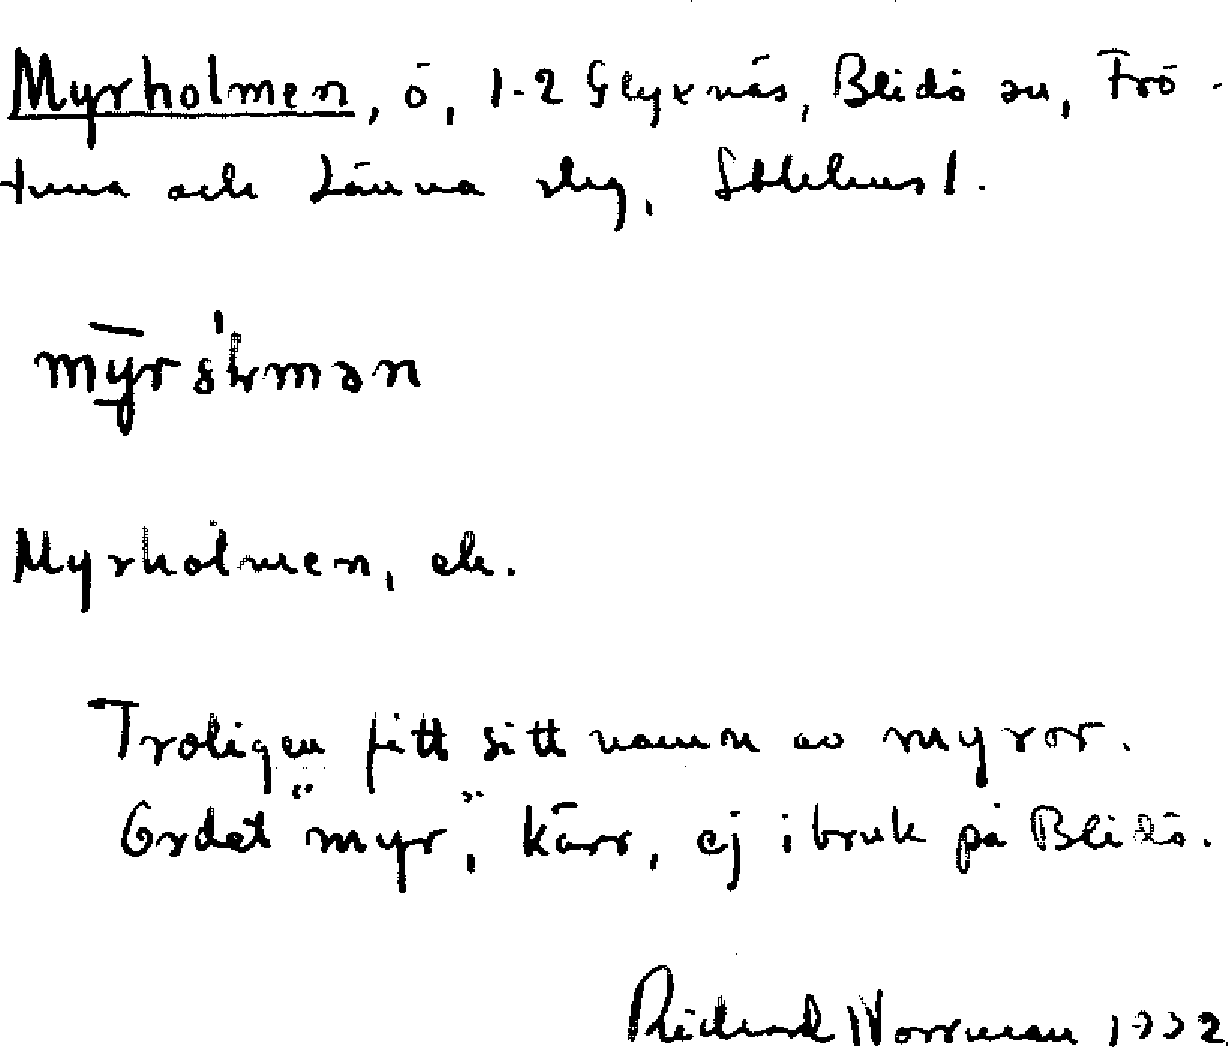 Myrholmen, ö, 1-2 Glyxnäs, Blidö sn, Frö-
tuna och Länna slg, Sthlms l.
Myrholmen, ek.
Troligen fått sitt namn av myror.
Ordet "myr", kärr, ej i bruk på Blidö.
Richard Norrman 1932